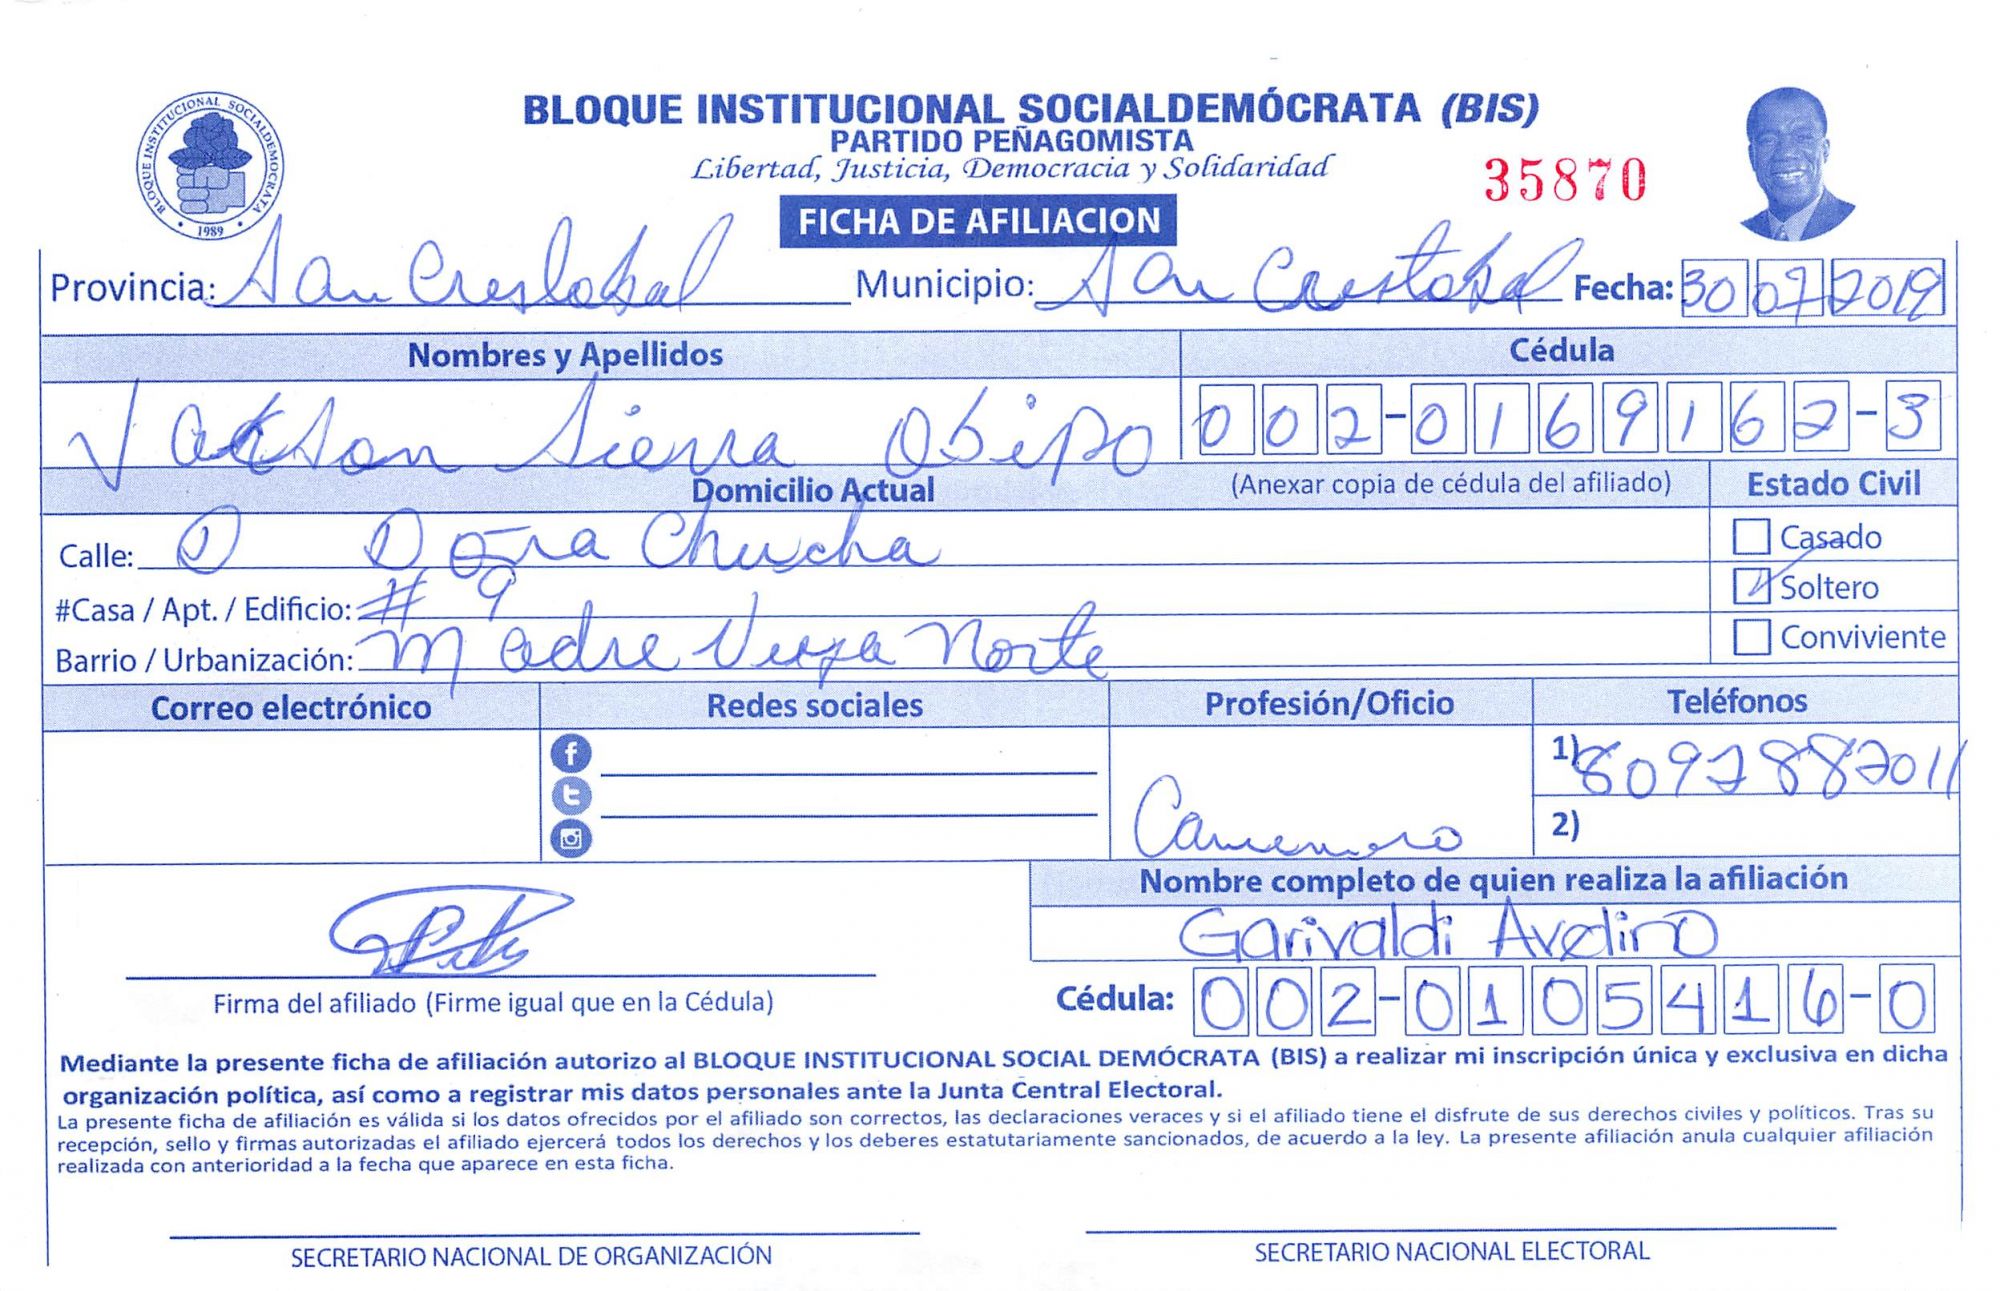 BLOQUE INSTITUCIONAL SOCIALDEMÓCRATA (BIS)
PARTIDO PEÑAGOMISTA
Libertad, Justicia, Democracia y Solidaridad
35870
BLOQUE INSTITUCIONAL SOCIALDEMOCRATA
1989
FICHA DE AFILIACION
Provincia: San Crestobal Municipio: San Crestobal Fecha: 30 07 2019
Nombres y Apellidos Cédula
Jackson Sierra Obispo 002-0169162-3
Domicilio Actual (Anexar copia de cédula del afiliado) Estado Civil
Calle: D Doña Chucha Casado
#Casa / Apt. / Edificio: # 9 Soltero
Barrio / Urbanización: Madre Vieja Norte Conviviente
Correo electrónico Redes sociales Profesión/Oficio Teléfonos
1) 8092882011
Camenero 2)
Nombre completo de quien realiza la afiliación
Garivaldi Avelino
Firma del afiliado (Firme igual que en la Cédula) Cédula: 002-0105416-0
Mediante la presente ficha de afiliación autorizo al BLOQUE INSTITUCIONAL SOCIAL DEMÓCRATA (BIS) a realizar mi inscripción única y exclusiva en dicha
organización política, así como a registrar mis datos personales ante la Junta Central Electoral.
La presente ficha de afiliación es válida si los datos ofrecidos por el afiliado son correctos, las declaraciones veraces y si el afiliado tiene el disfrute de sus derechos civiles y políticos. Tras su
recepción, sello y firmas autorizadas el afiliado ejercerá todos los derechos y los deberes estatutariamente sancionados, de acuerdo a la ley. La presente afiliación anula cualquier afiliación
realizada con anterioridad a la fecha que aparece en esta ficha.
SECRETARIO NACIONAL DE ORGANIZACIÓN SECRETARIO NACIONAL ELECTORAL